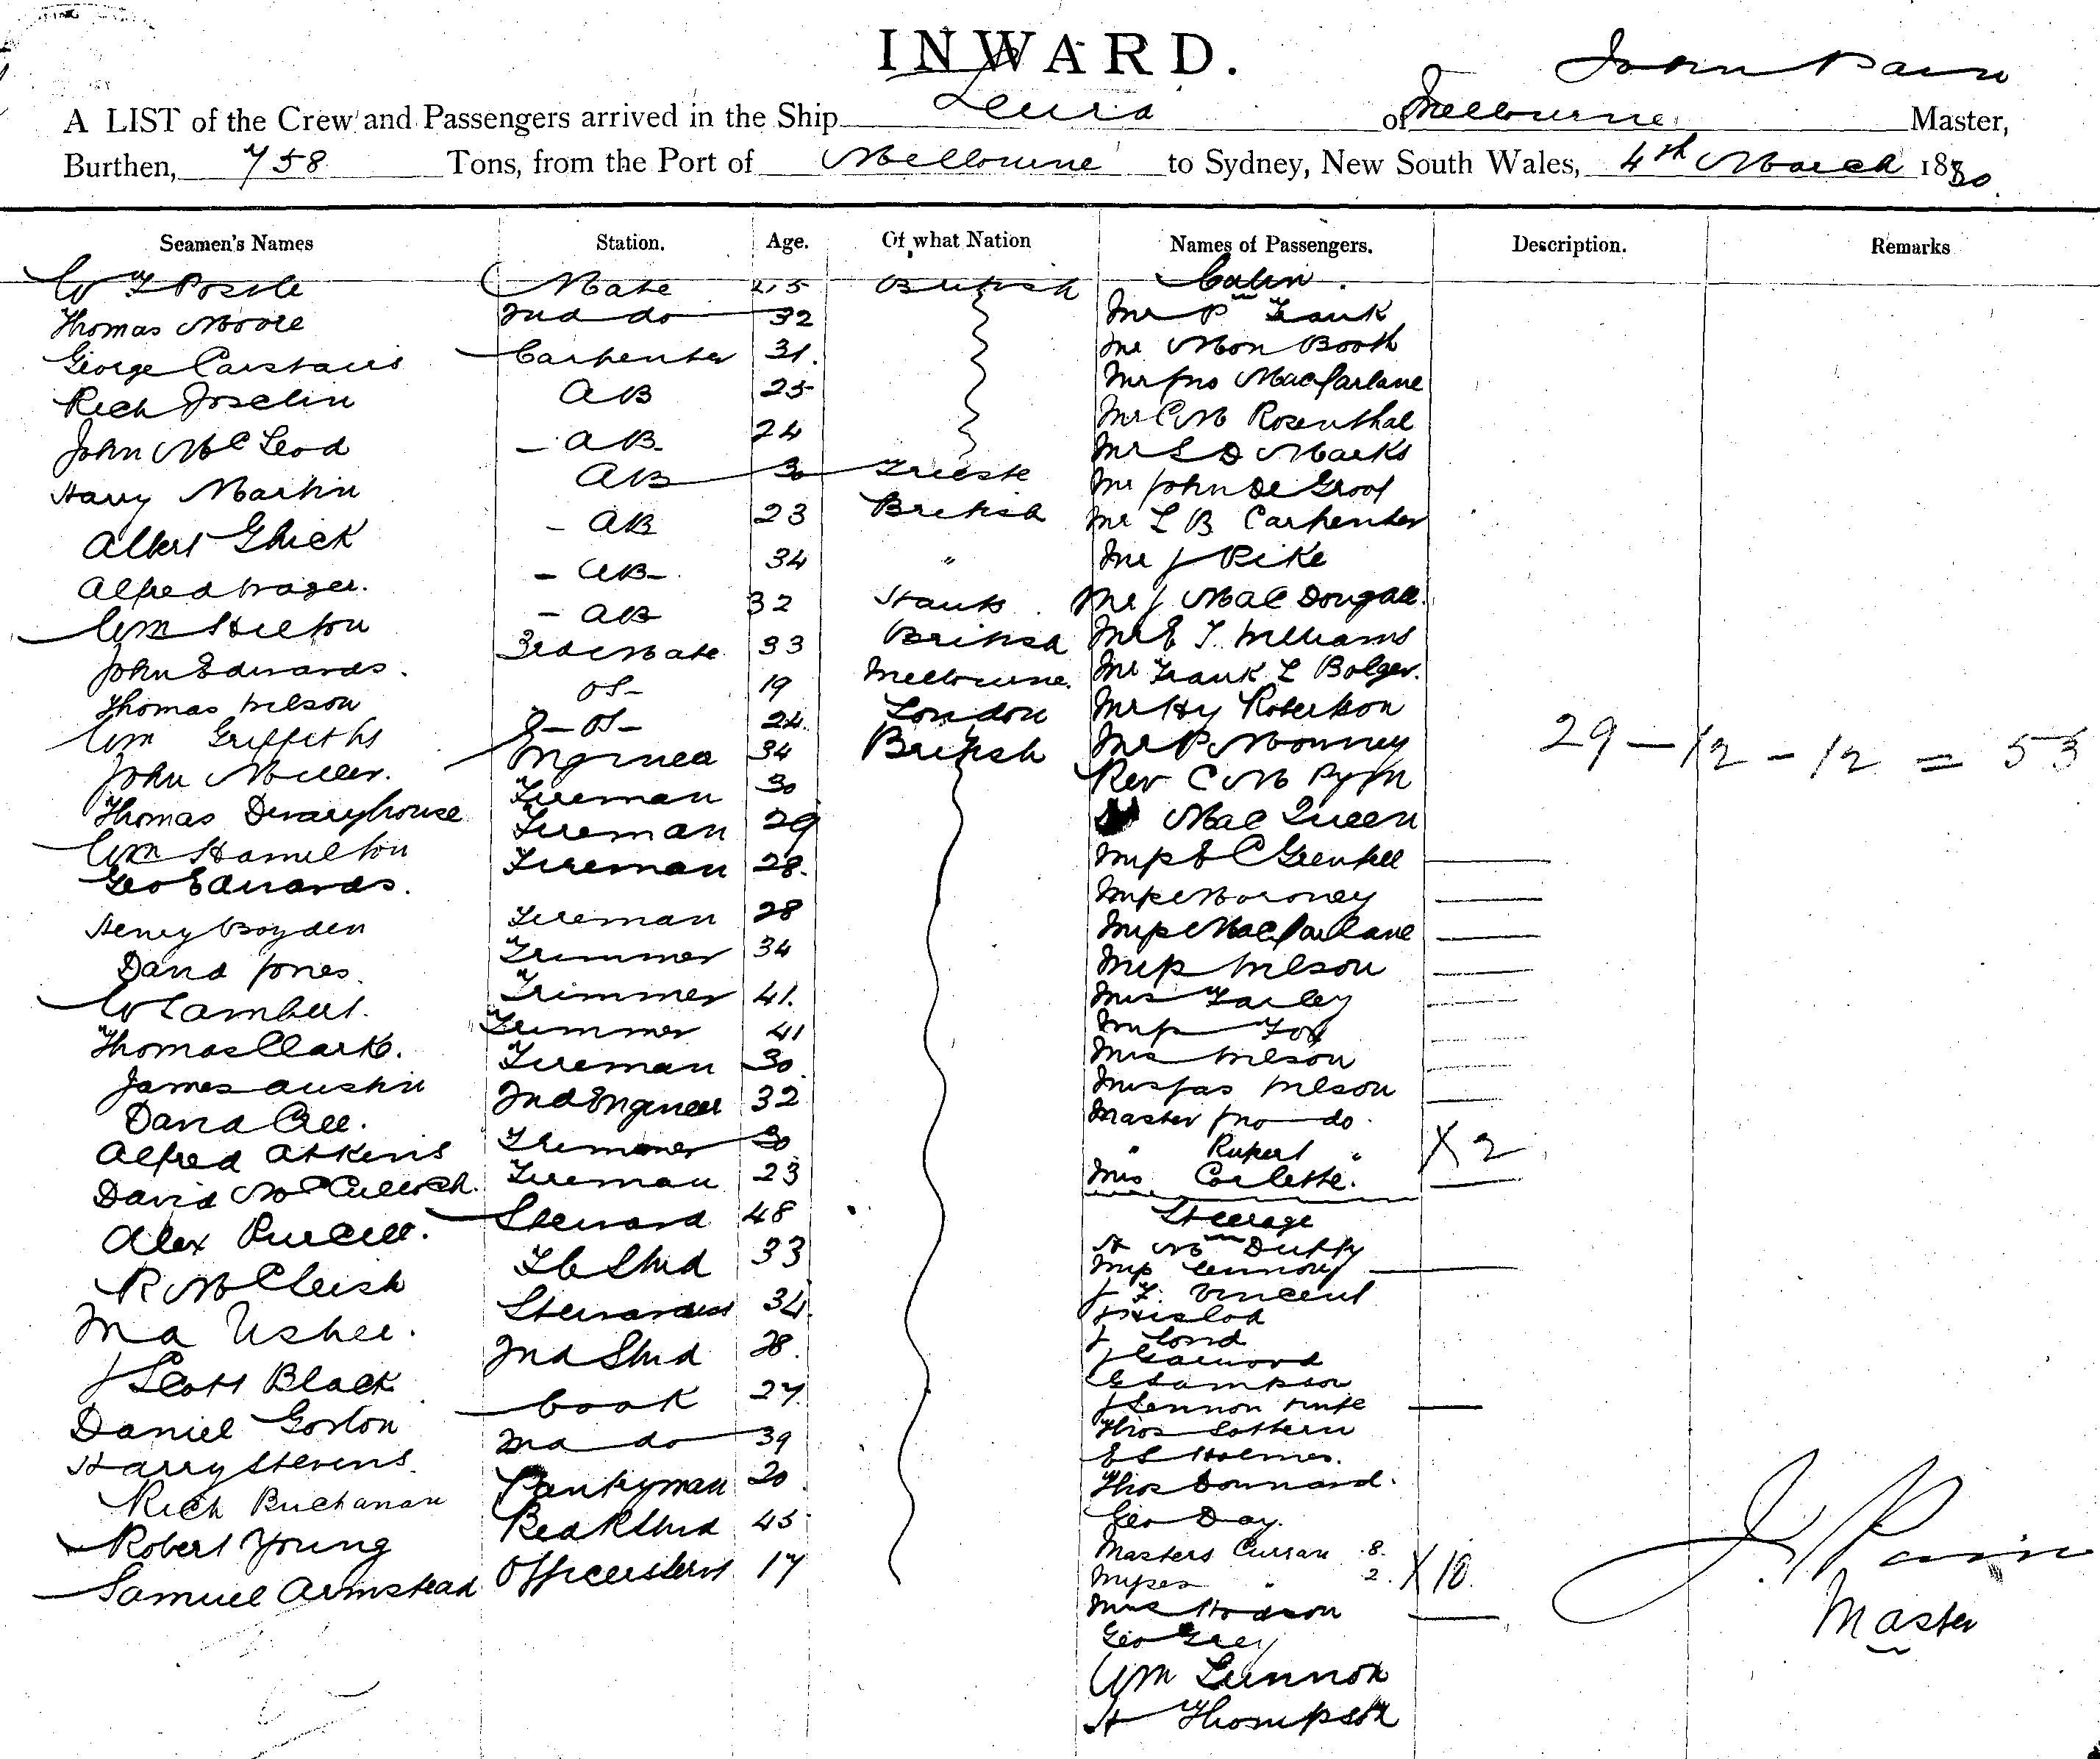 INWARD.
John Pain
A LIST of the Crew and Passengers arrived in the Ship Leura of Melbourne Master,
Burthen, 758 Tons, from the Port of Melbourne to Sydney, New South Wales, 4th March 1880.
Seamen's Names Station. Age. Of what Nation Names of Passengers. Description. Remarks
Mate 45 British Cabin.
Thomas Moore 2nd do 32 Mr P Frank
George Carstairs Carpenter 31. Mr Mon Booth
Rich Joscelin AB 25 Mr Jno MacFarlane
John McLeod - AB 24 Mr C M Rosenthal
Mr S D Marks
Harry Martin AB 30 Trieste Mr John De Groot
Albert - AB 23 British Mr L B Carpenter
Alfred - AB - 34 " Mr J Pike
Wm Hilton - AB 32 Mr J MacDougall.
John Edwards. 3rd Mate 33 British Mr E T. Williams
Thomas Wilson OS - 19 Melbourne. Mr Frank L Bolger.
Wm Griffiths OS - 24 London Mr Hy Robertson
John Miller. Engineer 34 British Mr P Moroney
Thomas Fireman 30 Rev C M Pym
Wm Hamilton Fireman 29 MacQueen
Geo Edwards. Fireman 28. Miss E C Grenfell
29 - 12 - 12 = 53
Miss Moroney
Henry Boyden Fireman 28 Miss MacFarlane
David Jones. Trimmer 34 Miss Wilson
W Lambert. Trimmer 41. Mrs Farley
Thomas Clark. Trimmer 41 Miss Fox
James Austin Fireman 30. Mrs Wilson
David Cree. 2nd Engineer 32 Mrs Jas Wilson
Master Jno do.
Alfred Atkins Trimmer 30 " Rupert " X 2
David McCulloch. Fireman 23 Mrs Collette.
Alex Purcell. Steward 48 Steerage
R McCleish F C Stwd 33 H M Duffy
Miss Lennon
J F. Vincent
Ma Usher. Stewardess 34 J Hislop
J Lord
J Scott Black 2nd Stwd 28. J Garwood
G Sampson
Daniel Gorton Cook 27 J Lennon wife
Thos Sothern
Harry Stevens. 2nd do 39 E S Holmes.
Rich Buchanan Pantryman 20 Thos Downard.
Robert Young Bed R Stwd 45 Geo Day.
Masters Curran 8.
Samuel Armstead Officers Servt 17 Misses " 2. X 10.
Mrs Hodson
Geo Grey
Wm Lennon
H Thompson
J. Pain
Master